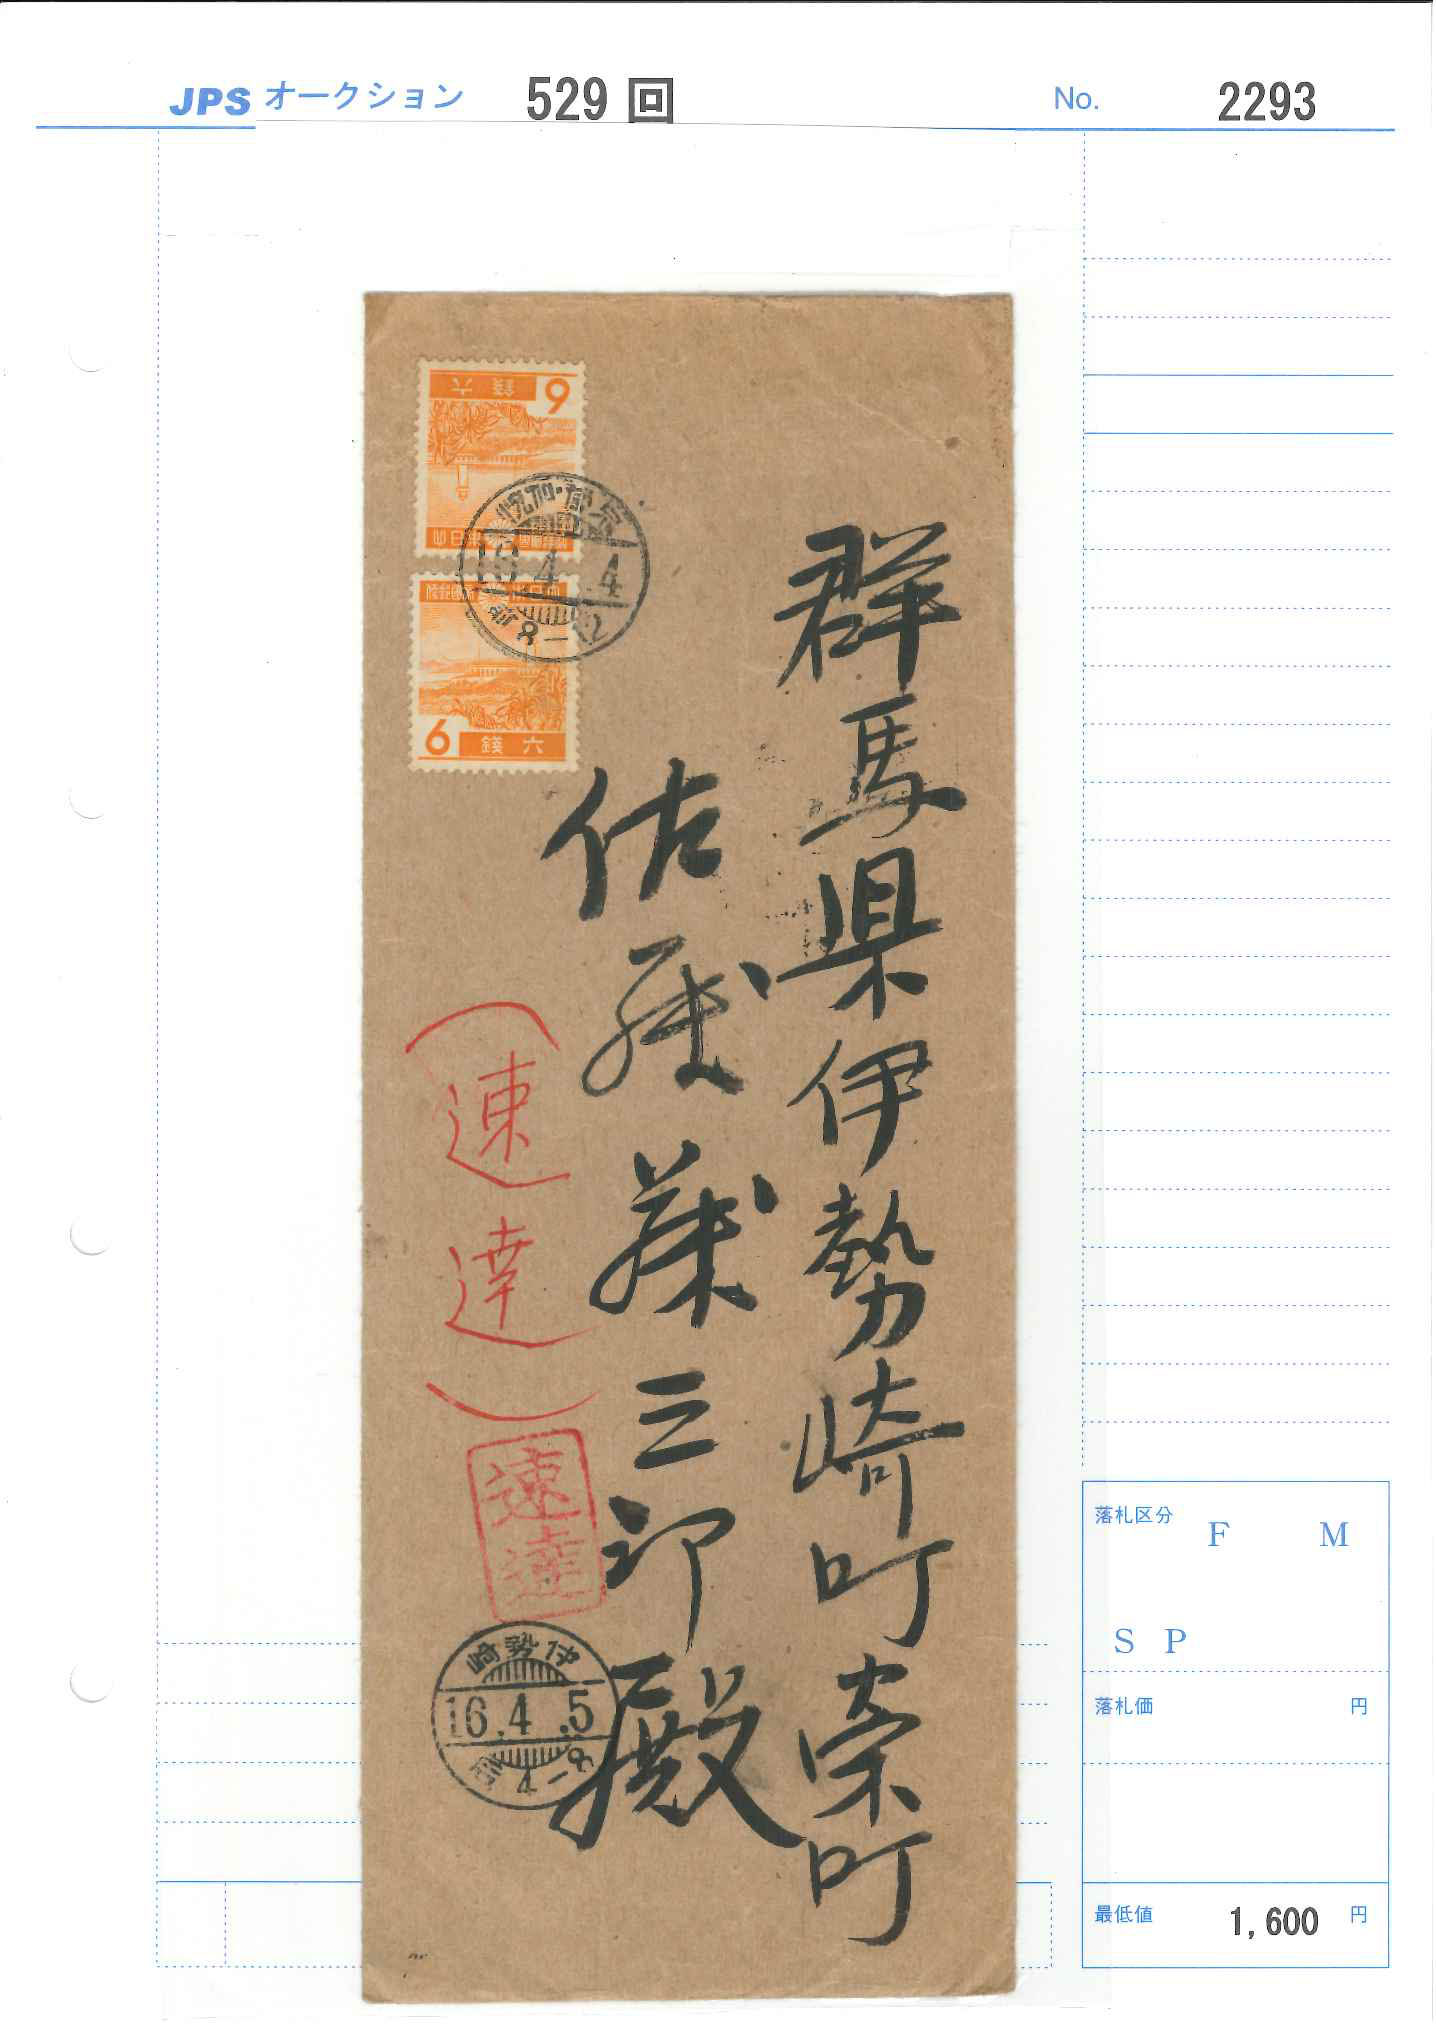 JPS オークション 529 回 No. 2293
6 錢 六
大日本帝國郵便
16.4.4
前 8-12
大日本帝國郵便
6 錢 六
群馬県伊勢崎町栄町
佐藤藤三郎殿
(速達)
速達
伊勢崎
16.4.5
前 4-8
落札区分 F M
S P
落札価 円
最低値 1,600 円